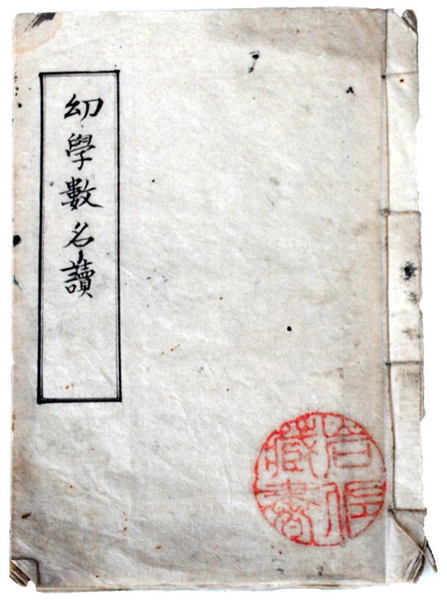 幼學數名讀
藏書